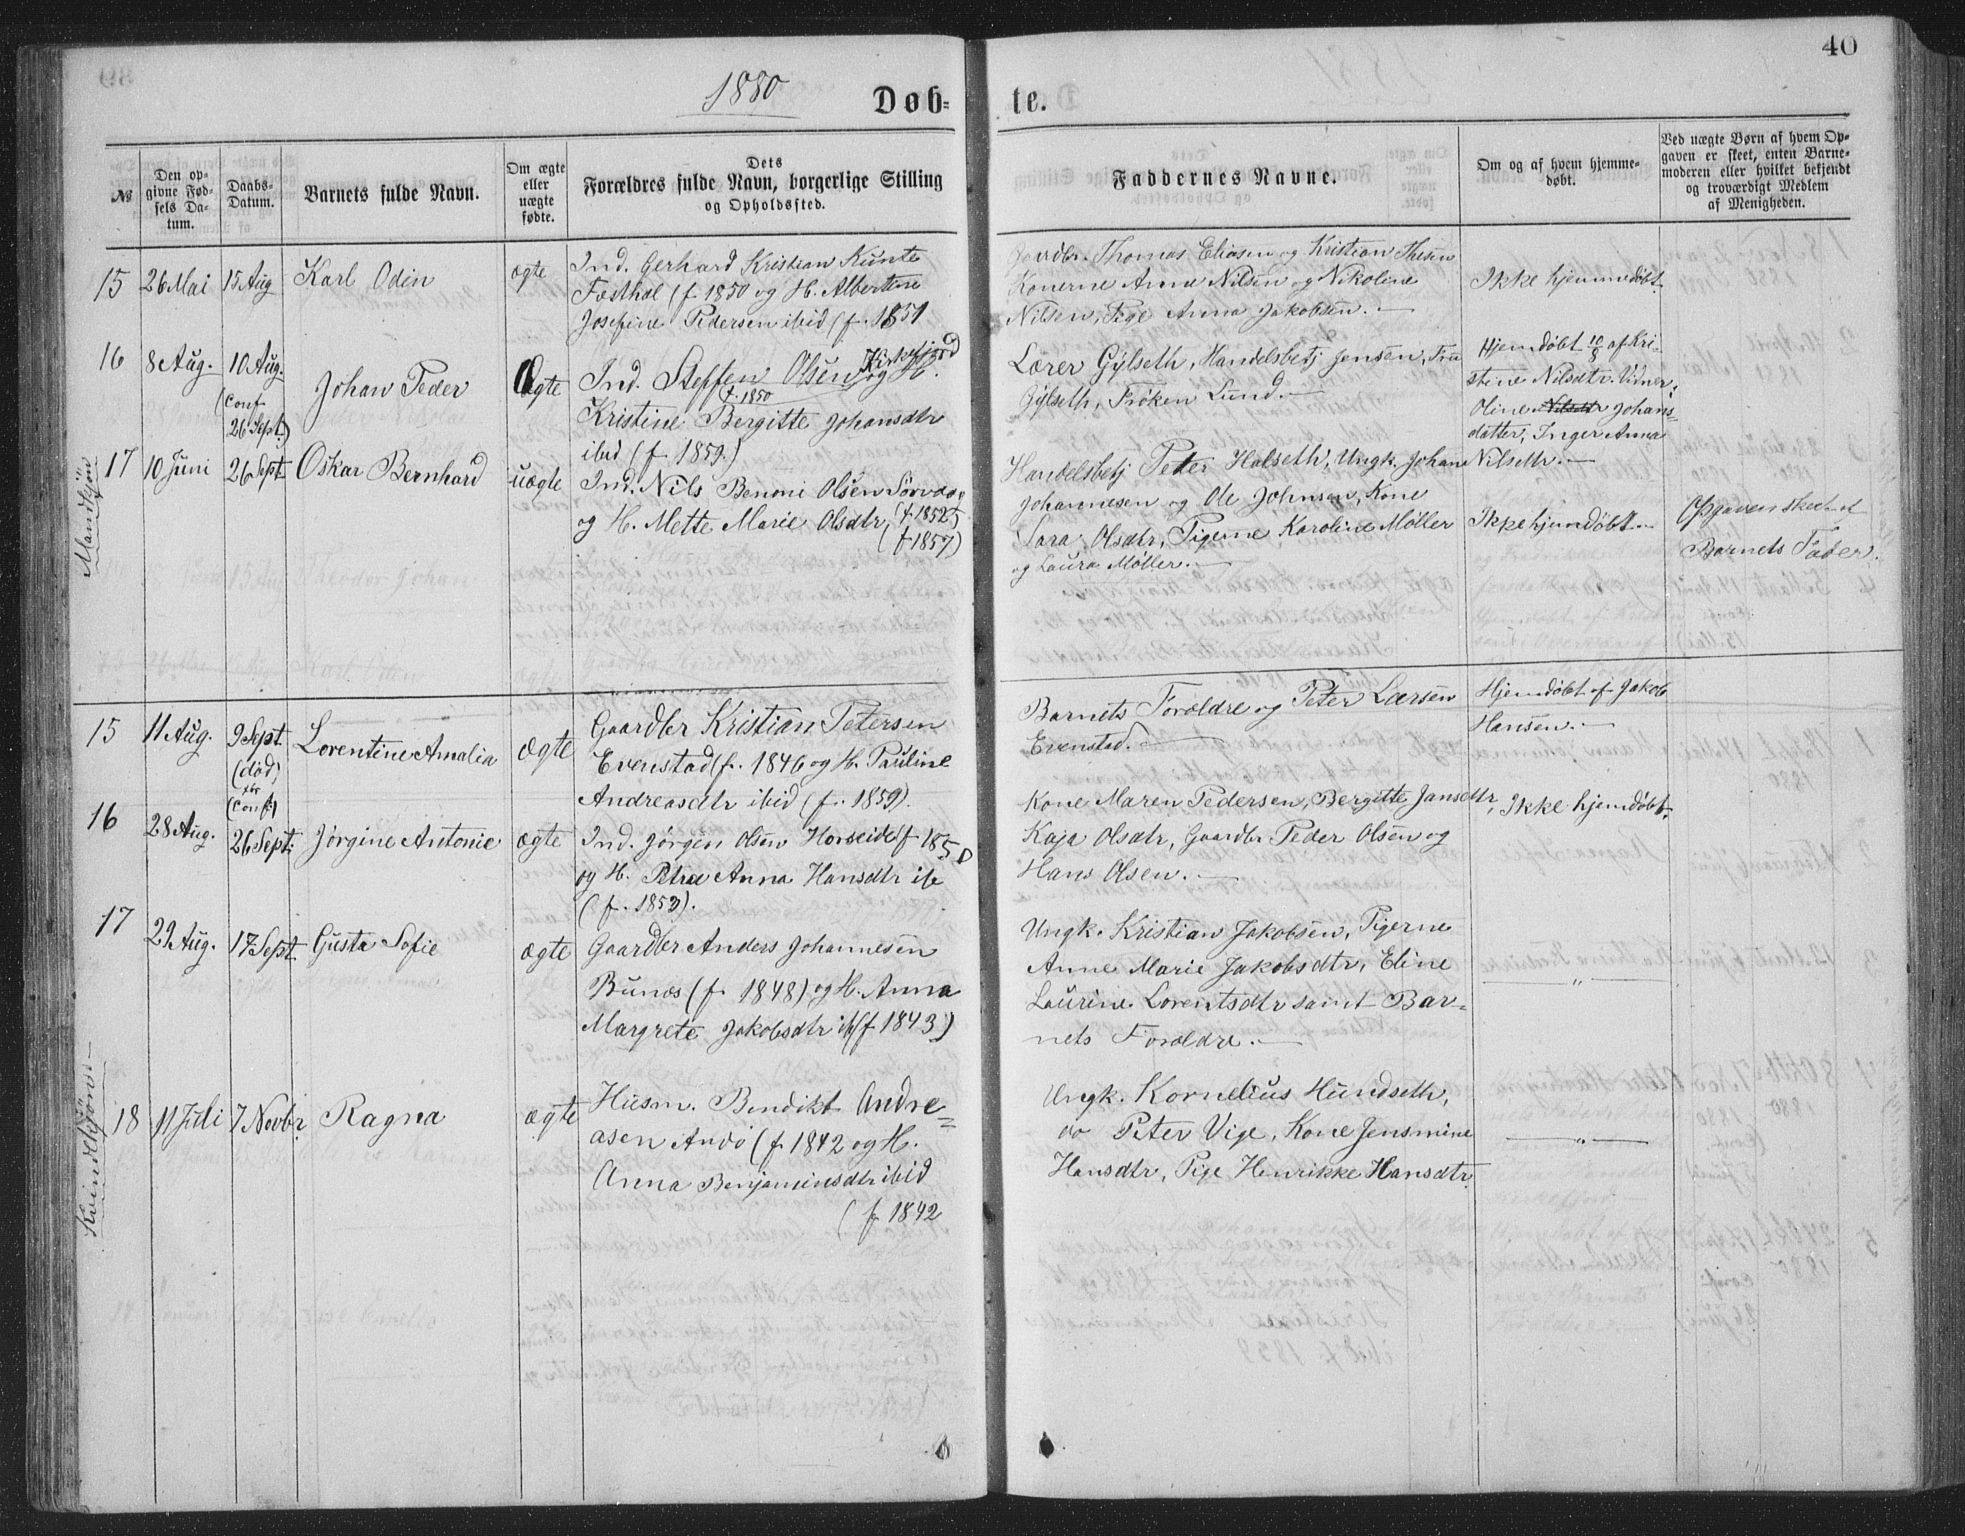 40
1880
Døb= te.
№
Den op-
givne Fød-
sels Da-
tum.
Daabs-
Datum.
Barnets fulde Navn.
Om ægte
eller
uægte
fødte.
Dets
Forældres fulde Navn, borgerlige Stilling
og Opholdssted.
Faddernes Navne.
Om og af hvem hjemme-
døbt.
Ved uægte Børn af hvem Op-
gaven er skeet, enten Barne-
moderen eller hvilket bekjendt
og troværdigt Medlem
af Menigheden.
Mandkjøn
15 26 Mai 15 Aug Karl Odin ægte
Ind. Gerhard Kristian Kunte
Fæsthæl (f. 1850 og H. Albertine
Josefine Pedersen ibid (f. 1851
Gaardbr. Thomas Eliasen og Kristian
Konerne Anna Nilsen og Nikoline
Nilsen, Pige Anna Jakobsen.
Ikke hjemmedøbt.
16 8 Aug. 10 Aug.
(conf
26 Sept.)
Johan Peder Ægte
Ind. Steffen Olsen Kirkefjord og H.
(f. 1850
Kristine Bergitte Johansdtr
ibid (f. 1859.)
Lærer Gylseth, Handelsbetj Jensen, Fru
Gylseth, Frøken Lund.
Hjemdøbt 10/8 af Kri-
stine Nilsdtr. Vidner:
Oline Nilsdtr Johans-
datter, Inger Anna
Nilseth.
17 10 Juni 26 Sept Oskar Bernhard uægte
Ind. Nils Benoni Olsen Sørvaag
(f. 1852)
og H. Mette Marie Olsdtr,
(f 1857)
Handelsbetj Peter Halseth, Ungk. Johan
Johannesen og Ole Johnsen, Kone
Sara Olsdtr, Pigerne Karoline Møller
og Laura Møller.
Ikke hjemdøbt
Opgaven skeet af
Barnets Fader.
Kvindekjøn
15 11 Aug. 9 Sept.
(død
før
conf.)
Lorentine Amalia ægte
Gaardbr Kristian Petersen
Evenstad (f. 1846 og H. Pauline
Andreasdtr ibid (f. 1859).
Barnets Forældre og Peter Larsen
Evenstad.
Hjemdøbt af Jakob
Hansen.
16 28 Aug. 26 Sept. Jørgine Antonie ægte
Ind. Jørgen Olsen Horseide (f 1850
og H. Petra Anna Hansdtr ib
(f. 1853).
Kone Maren Pedersen, Bergitte Jansdtr,
Kaja Olsdtr, Gaardbr Peder Olsen og
Hans Olsen.
Ikke hjemdøbt.
17 29 Aug. 17 Sept Gusta Sofie ægte
Gaardbr Anders Johannesen
Bunæs (f. 1848) og H. Anna
Margrete Jakobsdtr ib (f 1843)
Ungk. Kristian Jakobsen, Pigerne
Anne Marie Jakobsdtr, Eline
Laurine Lorentsdtr samt Bar-
nets Forældre.
"
18 11 Juli 7 Novbr Ragna ægte
Husm. Bendikt Andre-
asen Andø (f 1842 og H.
Anna Benjaminsdtr ibid
(f 1842
Ungk. Kornelius Hundseth,
do Peter Vige, Kone Jensmine
Hansdtr, Pige Henrikke Hansdtr.
"